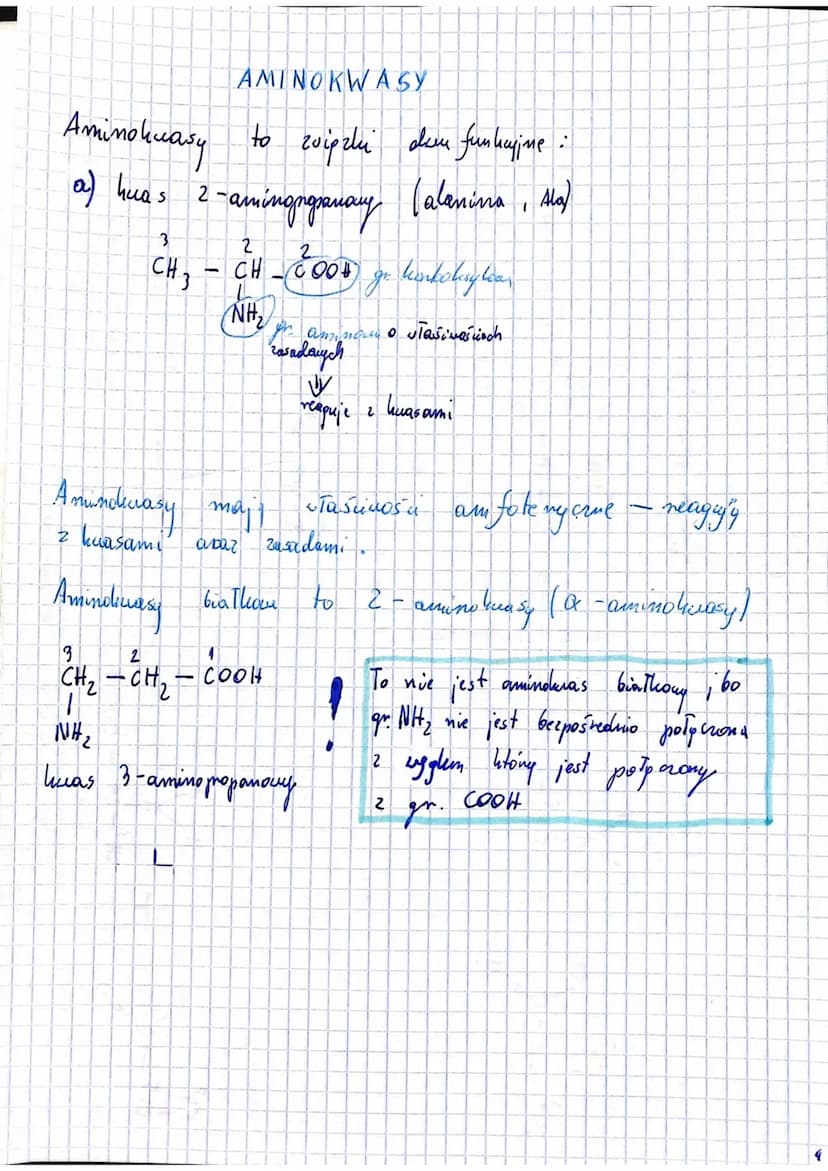 AMINOKWASY
Aminokwasy to związki dwu funkcyjne :
a) kwas 2-aminopropanowy (alanina, Ala)
3 2 2
CH3 - CH - COOH gr. karboksylowa
NH2
gr. aminowa o właściwościach
zasadowych
⇓
reaguje z kwasami
Aminokwasy mają właściwości amfoteryczne - reagują
z kwasami oraz zasadami.
Aminokwasy białkowe to 2-aminokwasy (α-aminokwasy)
3 2 1
CH2 - CH2 - COOH
NH2
kwas 3-aminopropanowy
!
To nie jest aminokwas białkowy, bo
gr. NH2 nie jest bezpośrednio połączona
z węglem który jest połączony
z gr. COOH
L